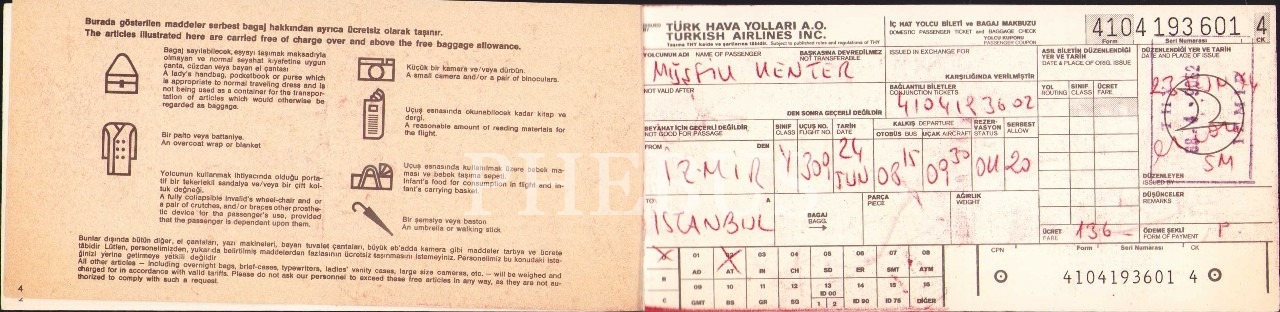 Burada gösterilen maddeler serbest bagaj hakkından ayrıca ücretsiz olarak taşınır.
The articles illustrated here are carried free of charge over and above the free baggage allowance.
Bagaj sayılabilecek, eşyayı taşımak maksadıyla
olmayan ve normal seyahat kıyafetine uygun
çanta, cüzdan veya bayan el çantası
A lady's handbag, pocketbook or purse which
is appropriate to normal traveling dress and is
not being used as a container for the transpor-
tation of articles which would otherwise be
regarded as baggage.
Bir palto veya battaniye.
An overcoat wrap or blanket
Yolcunun kullanmak ihtiyacında olduğu porta-
tif bir tekerlekli sandalya ve/veya bir çift kol-
tuk değneği.
A fully collapsible invalid's wheel-chair and or
a pair of crutches, and/or braces other prosthe-
tic device for the passenger's use, provided
that the passenger is dependant upon them.
Küçük bir kamera ve/veya dürbün.
A small camera and/or a pair of binoculars.
Uçuş esnasında okunabilecek kadar kitap ve
dergi.
A reasonable amount of reading materials for
the flight.
Uçuş esnasında kullanılmak üzere bebek ma-
ması ve bebek taşıma sepeti.
Infant's food for consumption in flight and in-
fant's carrying basket.
Bir şemsiye veya baston
An umbrella or walking stick.
Bunlar dışında bütün diğer, el çantaları, yazı makineleri, bayan tuvalet çantaları, büyük eb'adda kamera gibi maddeler tartıya ve ücrete
tâbidir Lütfen, personelimizden, yukarıda belirtilmiş maddelerden fazlasının ücretsiz taşınmasını istemeyiniz. Personelimiz bu konudaki iste-
ğinizi yerine getirmeye yetkili değildir
All other articles — including overnight bags, brief-cases, typewriters, ladies' vanity cases, large size cameras, etc. — will be weighed and
charged for in accordance with valid tariffs. Please do not ask our personnel to exceed these free articles in any way, as they are not au-
thorized to comply with such a request.
4
TÜRK HAVA YOLLARI A.O.
TURKISH AIRLINES INC.
İÇ HAT YOLCU BİLETİ ve BAGAJ MAKBUZU
DOMESTIC PASSENGER TICKET and BAGGAGE CHECK
YOLCU KUPONU
PASSENGER COUPON
4104 193601 4
Form Seri Numarası CK
YOLCUNUN ADI NAME OF PASSENGER
BAŞKASINA DEVREDİLMEZ
NOT TRANSFERABLE
MÜŞFİK KENTER
ISSUED IN EXCHANGE FOR
KARŞILIĞINDA VERİLMİŞTİR
ASIL BİLETİN DÜZENLENDİĞİ
YER VE TARİHİ
DATE & PLACE OF ORIG. ISSUE
DÜZENLENDİĞİ YER VE TARİH
DATE AND PLACE OF ISSUE
NOT VALID AFTER
DEN SONRA GEÇERLİ DEĞİLDİR
BAĞLANTILI BİLETLER
CONJUNCTION TICKETS
4104193602
YOL
ROUTING
SINIF
CLASS
ÜCRET
FARE
SEYAHAT İÇİN GEÇERLİ DEĞİLDİR
NOT GOOD FOR PASSAGE
SINIF
CLASS
UÇUŞ NO.
FLIGHT NO.
TARİH
DATE
KALKIŞ DEPARTURE
OTOBÜS BUS
UÇAK AIRCRAFT
REZER-
VASYON
STATUS
SERBEST
ALLOW
FROM
DEN
IZMIR Y 309 24 JUN 08 15 09 30 OK 20
SM
DÜZENLEYEN
ISSUED BY
TO
A
ISTANBUL
BAGAJ
BAGG.
PARÇA
PIECE
AĞIRLIK
WEIGHT
DÜŞÜNCELER
REMARKS
ÜCRET
FARE
136-
ÖDEME ŞEKLİ
FORM OF PAYMENT
P
A 01 02 03 04 05 06 07 08
AD AT IN CH SD ER SMT AYM
B 09 10 11 12 13 14 15 16
C GMT BS GR SG 1 2 ID 00 ID 90 ID 75 DİĞER
CPN Form Seri Numarası CK
4104193601 4